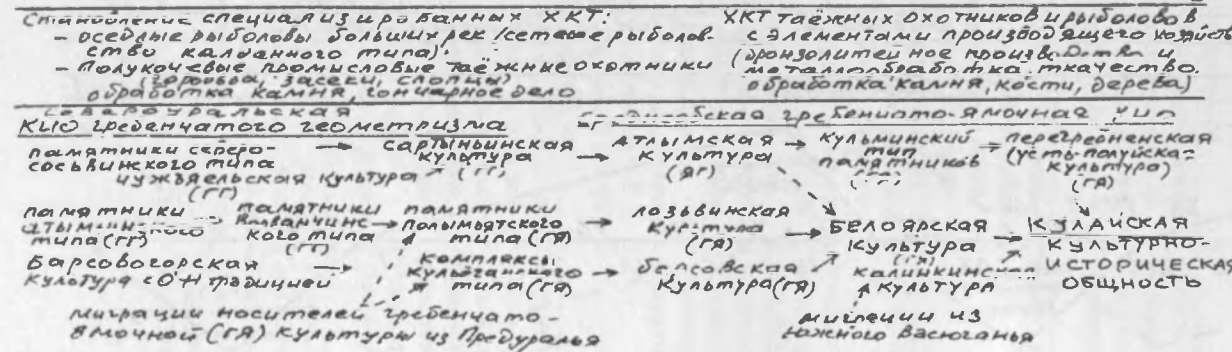 Становление специализированных ХКТ:
- оседлые рыболовы больших рек (сетевое рыболов-
ство калданного типа);
- полукочевые промысловые таёжные охотники
(городьба, засеки, слопцы)
обработка камня, гончарное дело
ХКТ таёжных охотников и рыболовов
с элементами производящего хозяйства
(бронзолитейное производство и
металлообработка, ткачество,
обработка камня, кости, дерева)
Североуральская
КИО гребенчатого геометризма
гребенчато-ямочная КИО
памятники северо-
сосьвинского типа
сартыньинская
культура
(гг)
атлымская
культура
(яг)
кульминский
тип
памятников
перегребненская
(усть-полуйская
культура)
(гя)
чужъяельская культура
(гг)
памятники
атымьинского
типа (гг)
памятники
кого типа
(гг)
памятники
полымьятского
типа (гя)
лозьвинская
культура
(гя)
БЕЛОЯРСКАЯ
культура
(гя)
КУЛАЙСКАЯ
КУЛЬТУРНО-
ИСТОРИЧЕСКАЯ
ОБЩНОСТЬ
Барсовогорская
культура с О-Н традицией
комплексы
кульёганского
типа (гя)
барсовская
культура (гя)
калинкинская
культура
миграции носителей гребенчато-
ямочной (гя) культуры из Предуралья
миграции из
южного Васюганья